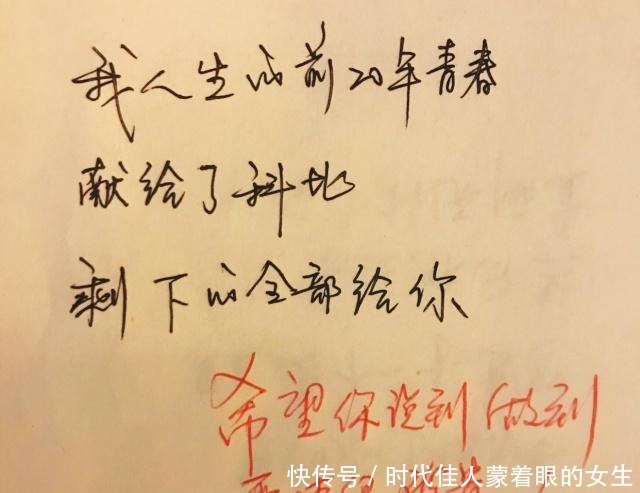 我人生的前20年青春
献给了科比
剩下的全部给你
希望你说到做到
快传号/时代佳人蒙着眼的女生